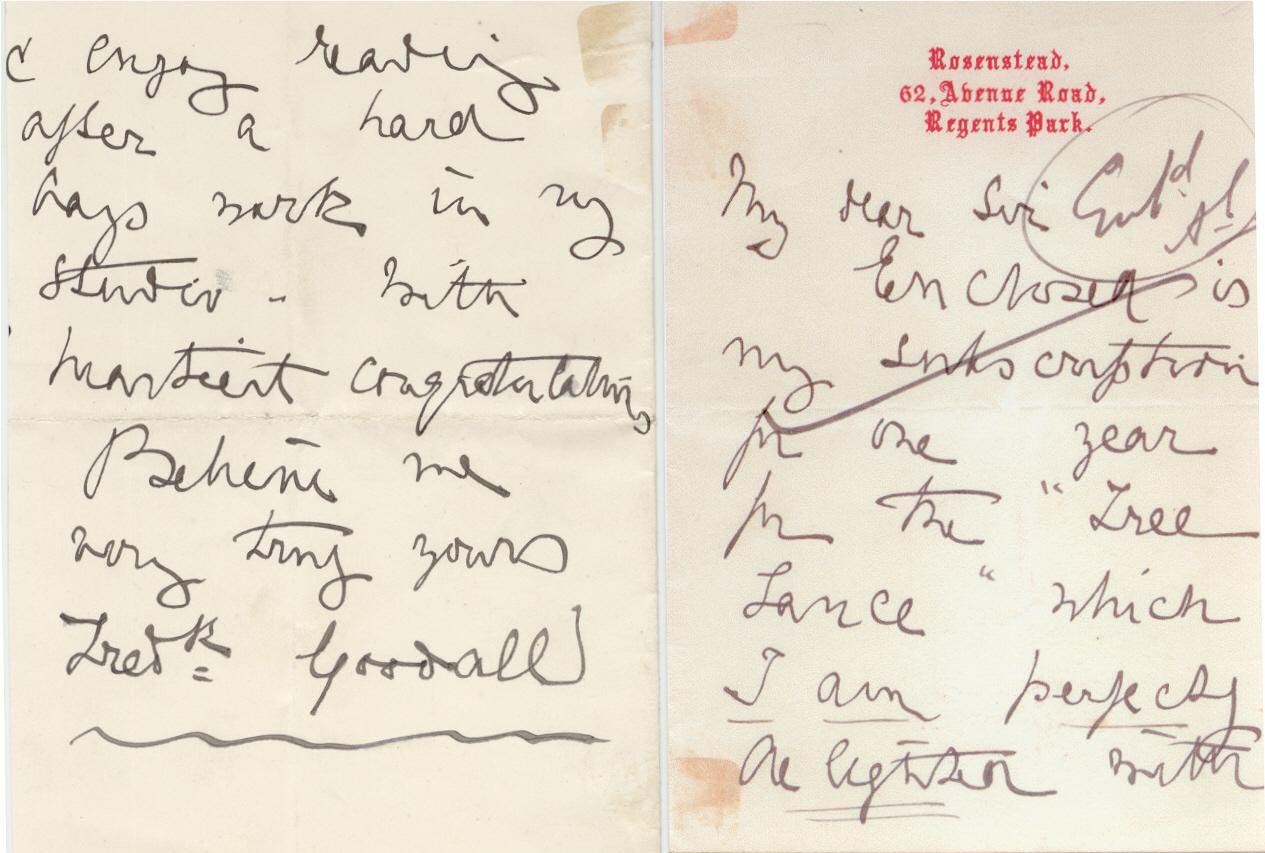 Rosenstead,
62, Avenue Road,
Regents Park.
My dear Sir
Enclosed is
my subscription
for one year
for the "Free
Lance" which
I am perfectly
delighted with
& enjoy reading
after a hard
days work in my
Studio - With
heartiest congratulations
Believe me
very truly yours
Fredk Goodall